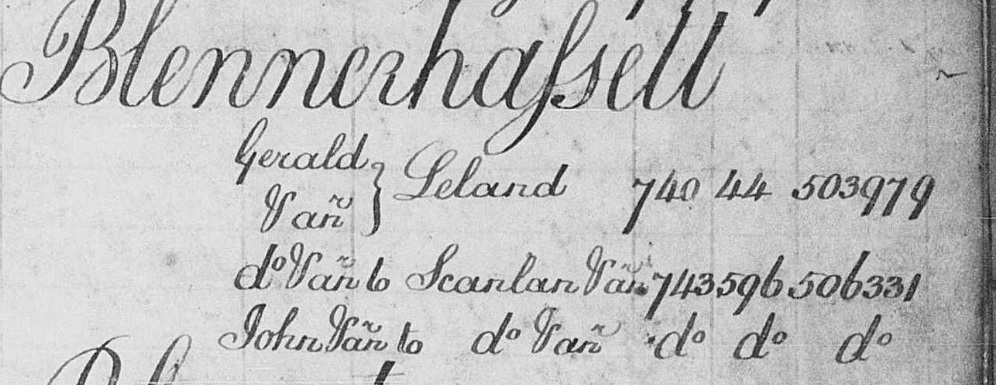 Blennerhaſsett
Gerald } Leland 740 44 503979
Vañ
do Vañ to Scanlan Vañ 743 596 506331
John Vañ to do Vañ do do do